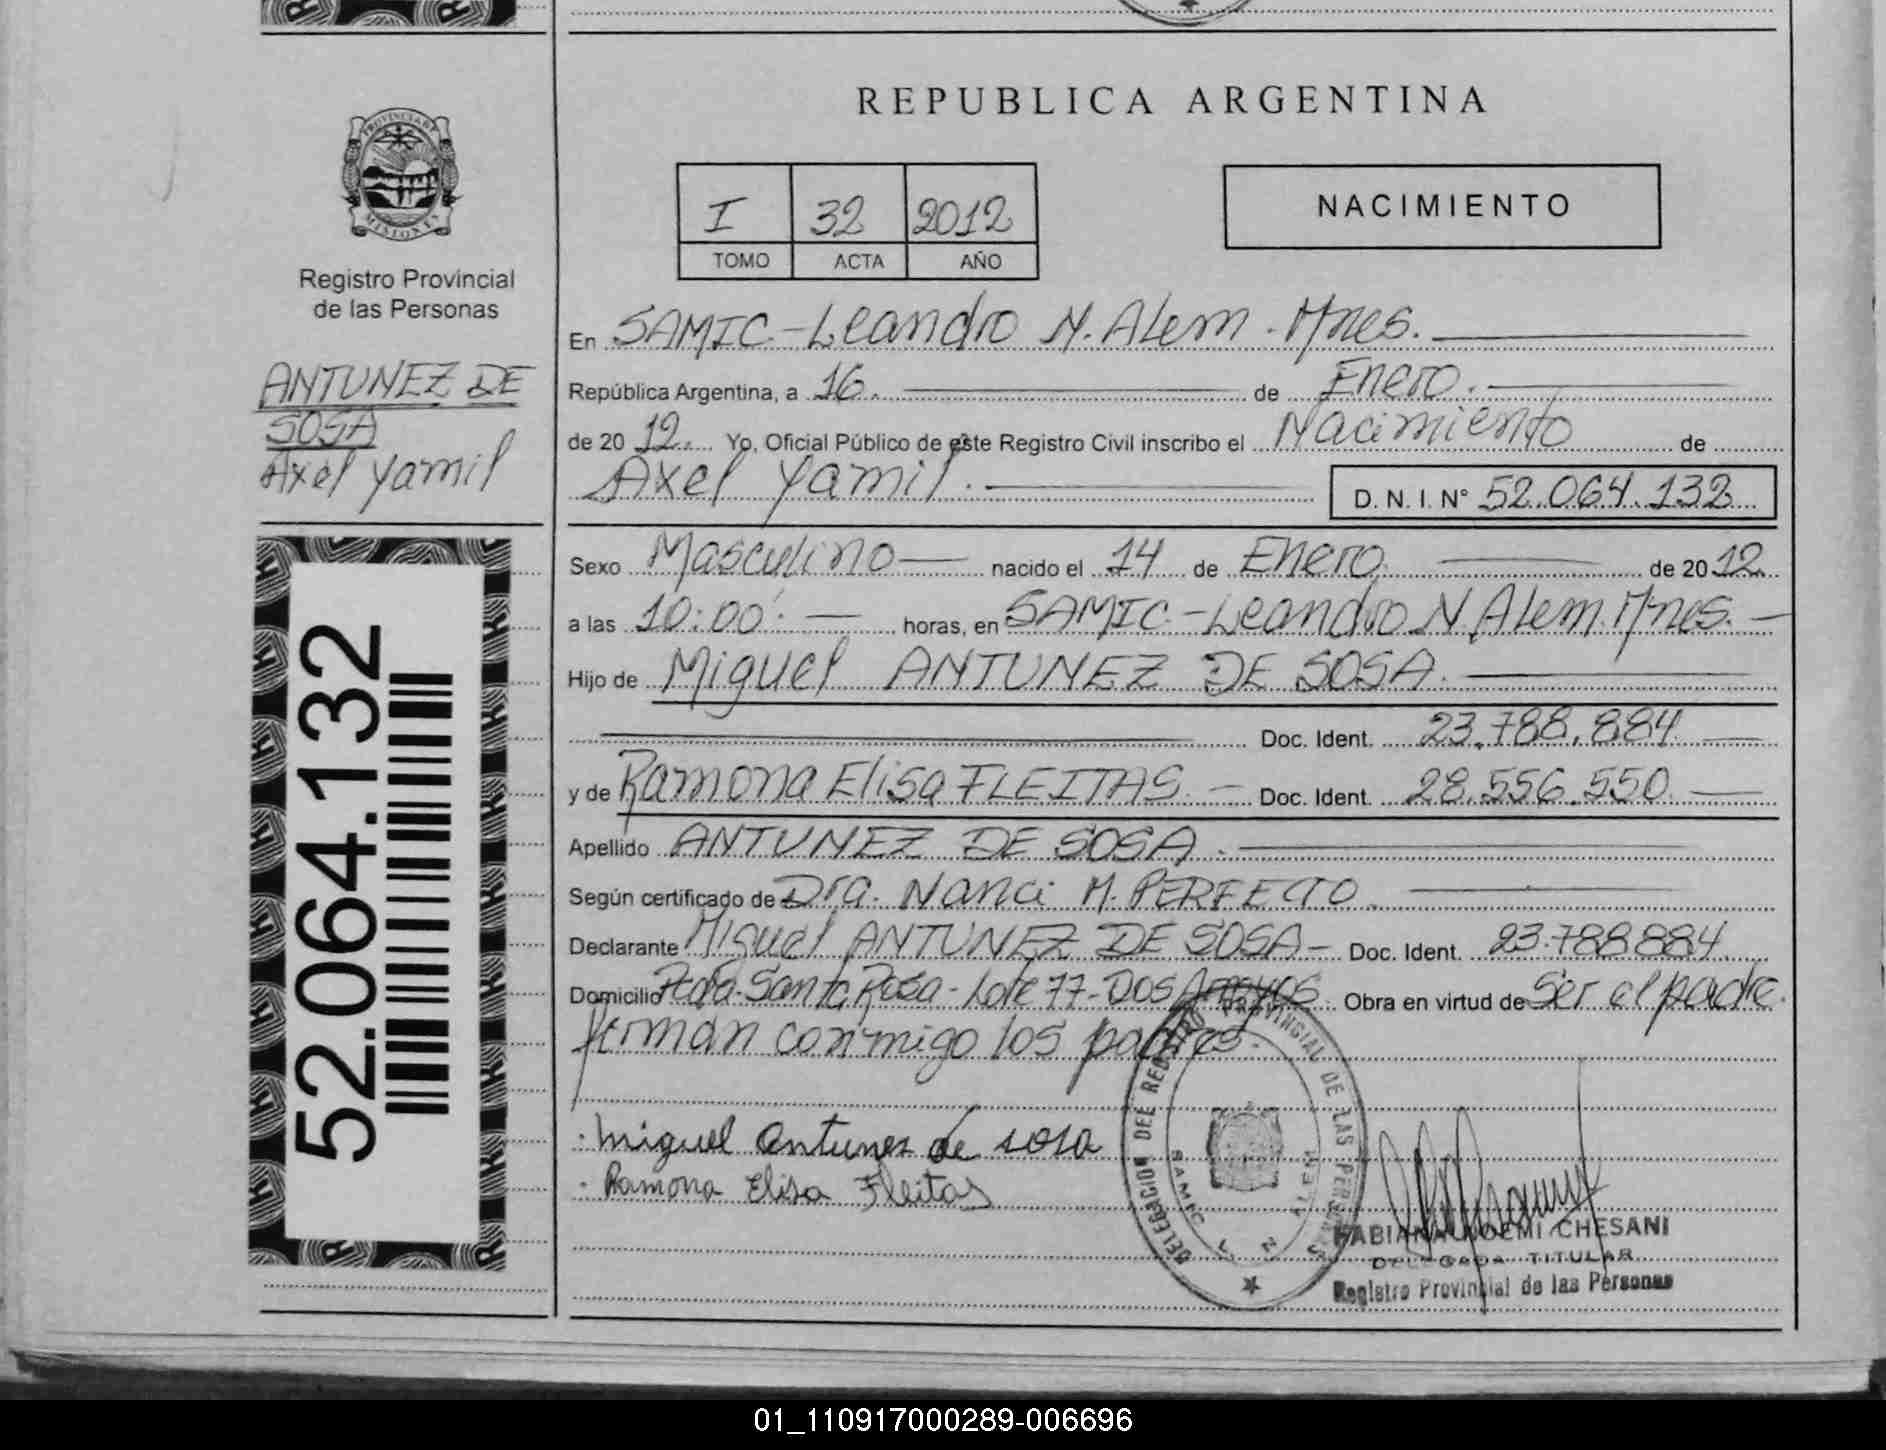 REPUBLICA ARGENTINA
PROVINCIA DE
MISIONES
Registro Provincial
de las Personas
ANTUNEZ DE
SOSA
Axel Yamil
52.064.132
I 32 2012
TOMO ACTA AÑO
NACIMIENTO
En SAMIC - Leandro N. Alem. Mnes.
República Argentina, a 16. de Enero.
de 20 12. Yo, Oficial Público de este Registro Civil inscribo el Nacimiento de
Axel Yamil. D. N. I. N° 52.064.132
Sexo Masculino nacido el 14 de Enero de 20 12
a las 10:00 horas, en SAMIC - Leandro N Alem. Mnes.
Hijo de Miguel ANTUNEZ DE SOSA.
Doc. Ident. 23.788.884
y de Ramona Elisa FLEITAS. Doc. Ident. 28.556.550
Apellido ANTUNEZ DE SOSA.
Según certificado de Dra. Nanci M. PERFECTO.
Declarante Miguel ANTUNEZ DE SOSA - Doc. Ident. 23.788884
Domicilio Santa Rosa - Lote 77 - DOS Arroyos Obra en virtud de Ser el padre.
firman conmigo los padres.
Miguel Antunez de sosa
Ramona Elisa Fleitas
DELEGACION DEL REGISTRO PROVINCIAL DE LAS PERSONAS
SAMIC L. N. ALEM
FABIANA NOEMI CHESANI
DELEGADA TITULAR
Registro Provincial de las Personas
01_110917000289-006696